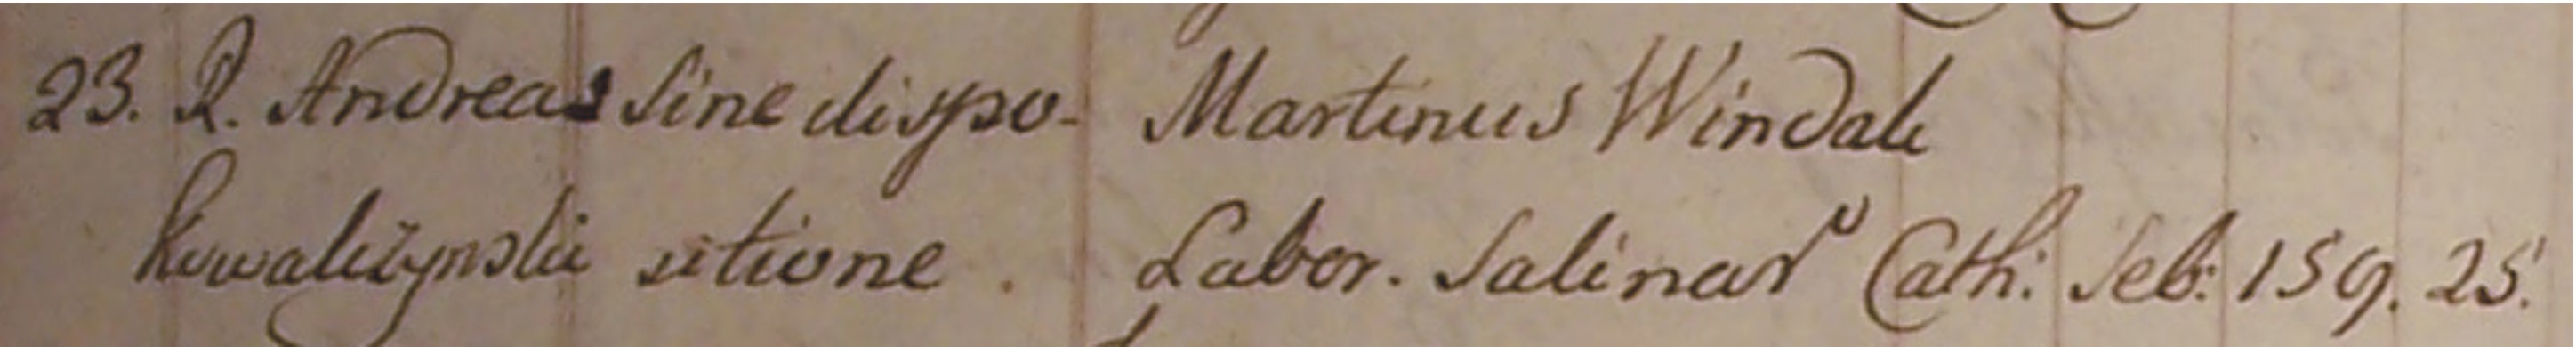 23. R. Andreas Sine dispo- Martinus Windak
Kowalczÿnski sitione. Labor. Salinar Cath: Seb: 159. 25.